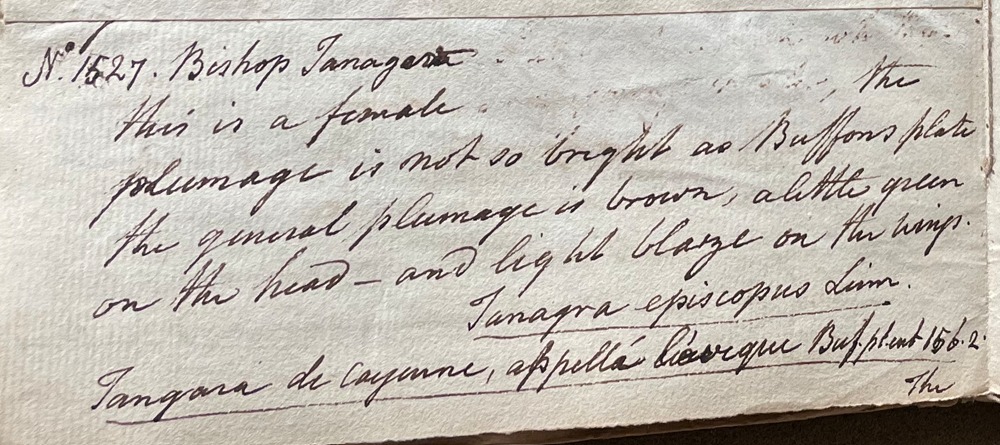 No. 1527. Bishop Tanager
this is a female , the
plumage is not so bright as Buffons plate
the general plumage is brown, a little green
on the head – and light blaze on the wings.
Tanagra episcopus Linn.
Tangara de Cayenne, appellá l'éveque Buf. pl. enl. 156. 2.
The